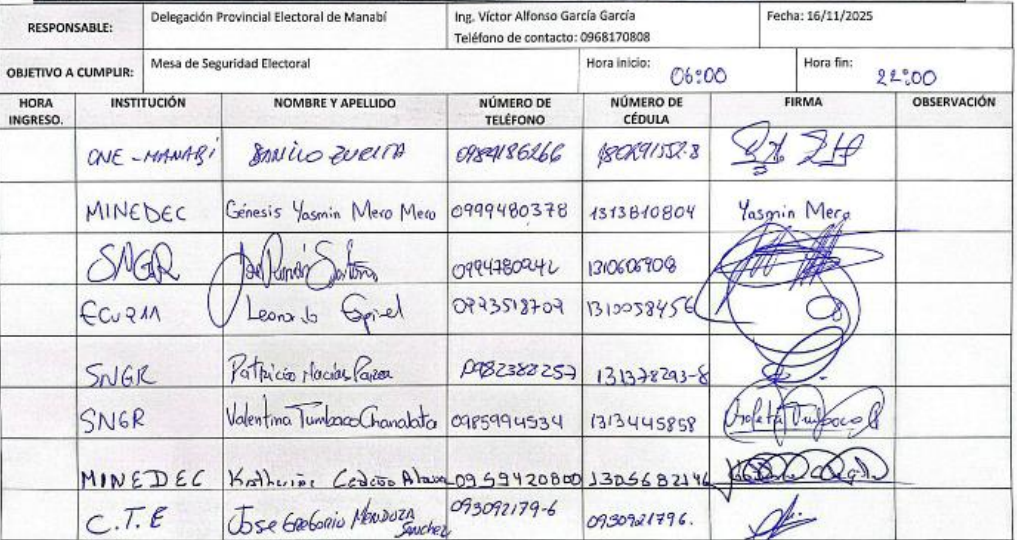 RESPONSABLE: Delegación Provincial Electoral de Manabí Ing. Víctor Alfonso García García Fecha: 16/11/2025
Teléfono de contacto: 0968170808
OBJETIVO A CUMPLIR: Mesa de Seguridad Electoral Hora inicio: 06:00 Hora fin: 22:00
HORA INGRESO. INSTITUCIÓN NOMBRE Y APELLIDO NÚMERO DE TELÉFONO NÚMERO DE CÉDULA FIRMA OBSERVACIÓN
CNE-MANABÍ
MINEDEC Génesis Yasmin Mero Mero 0999480378 1313810804 Yasmin Mero
SNGR José Ramón 0994780942
ECU 911 Leonardo Espinel 1310058456
SNGR Patricio Macías 0982388257 131378293-8
SNGR Valentina Tumbaco 0985994534 1313445858
MINEDEC Katherine Cedeño 0959420800 1305682146
C.T.E Jose Gregorio Mendoza Sanchez 093092179-6 0930921796.